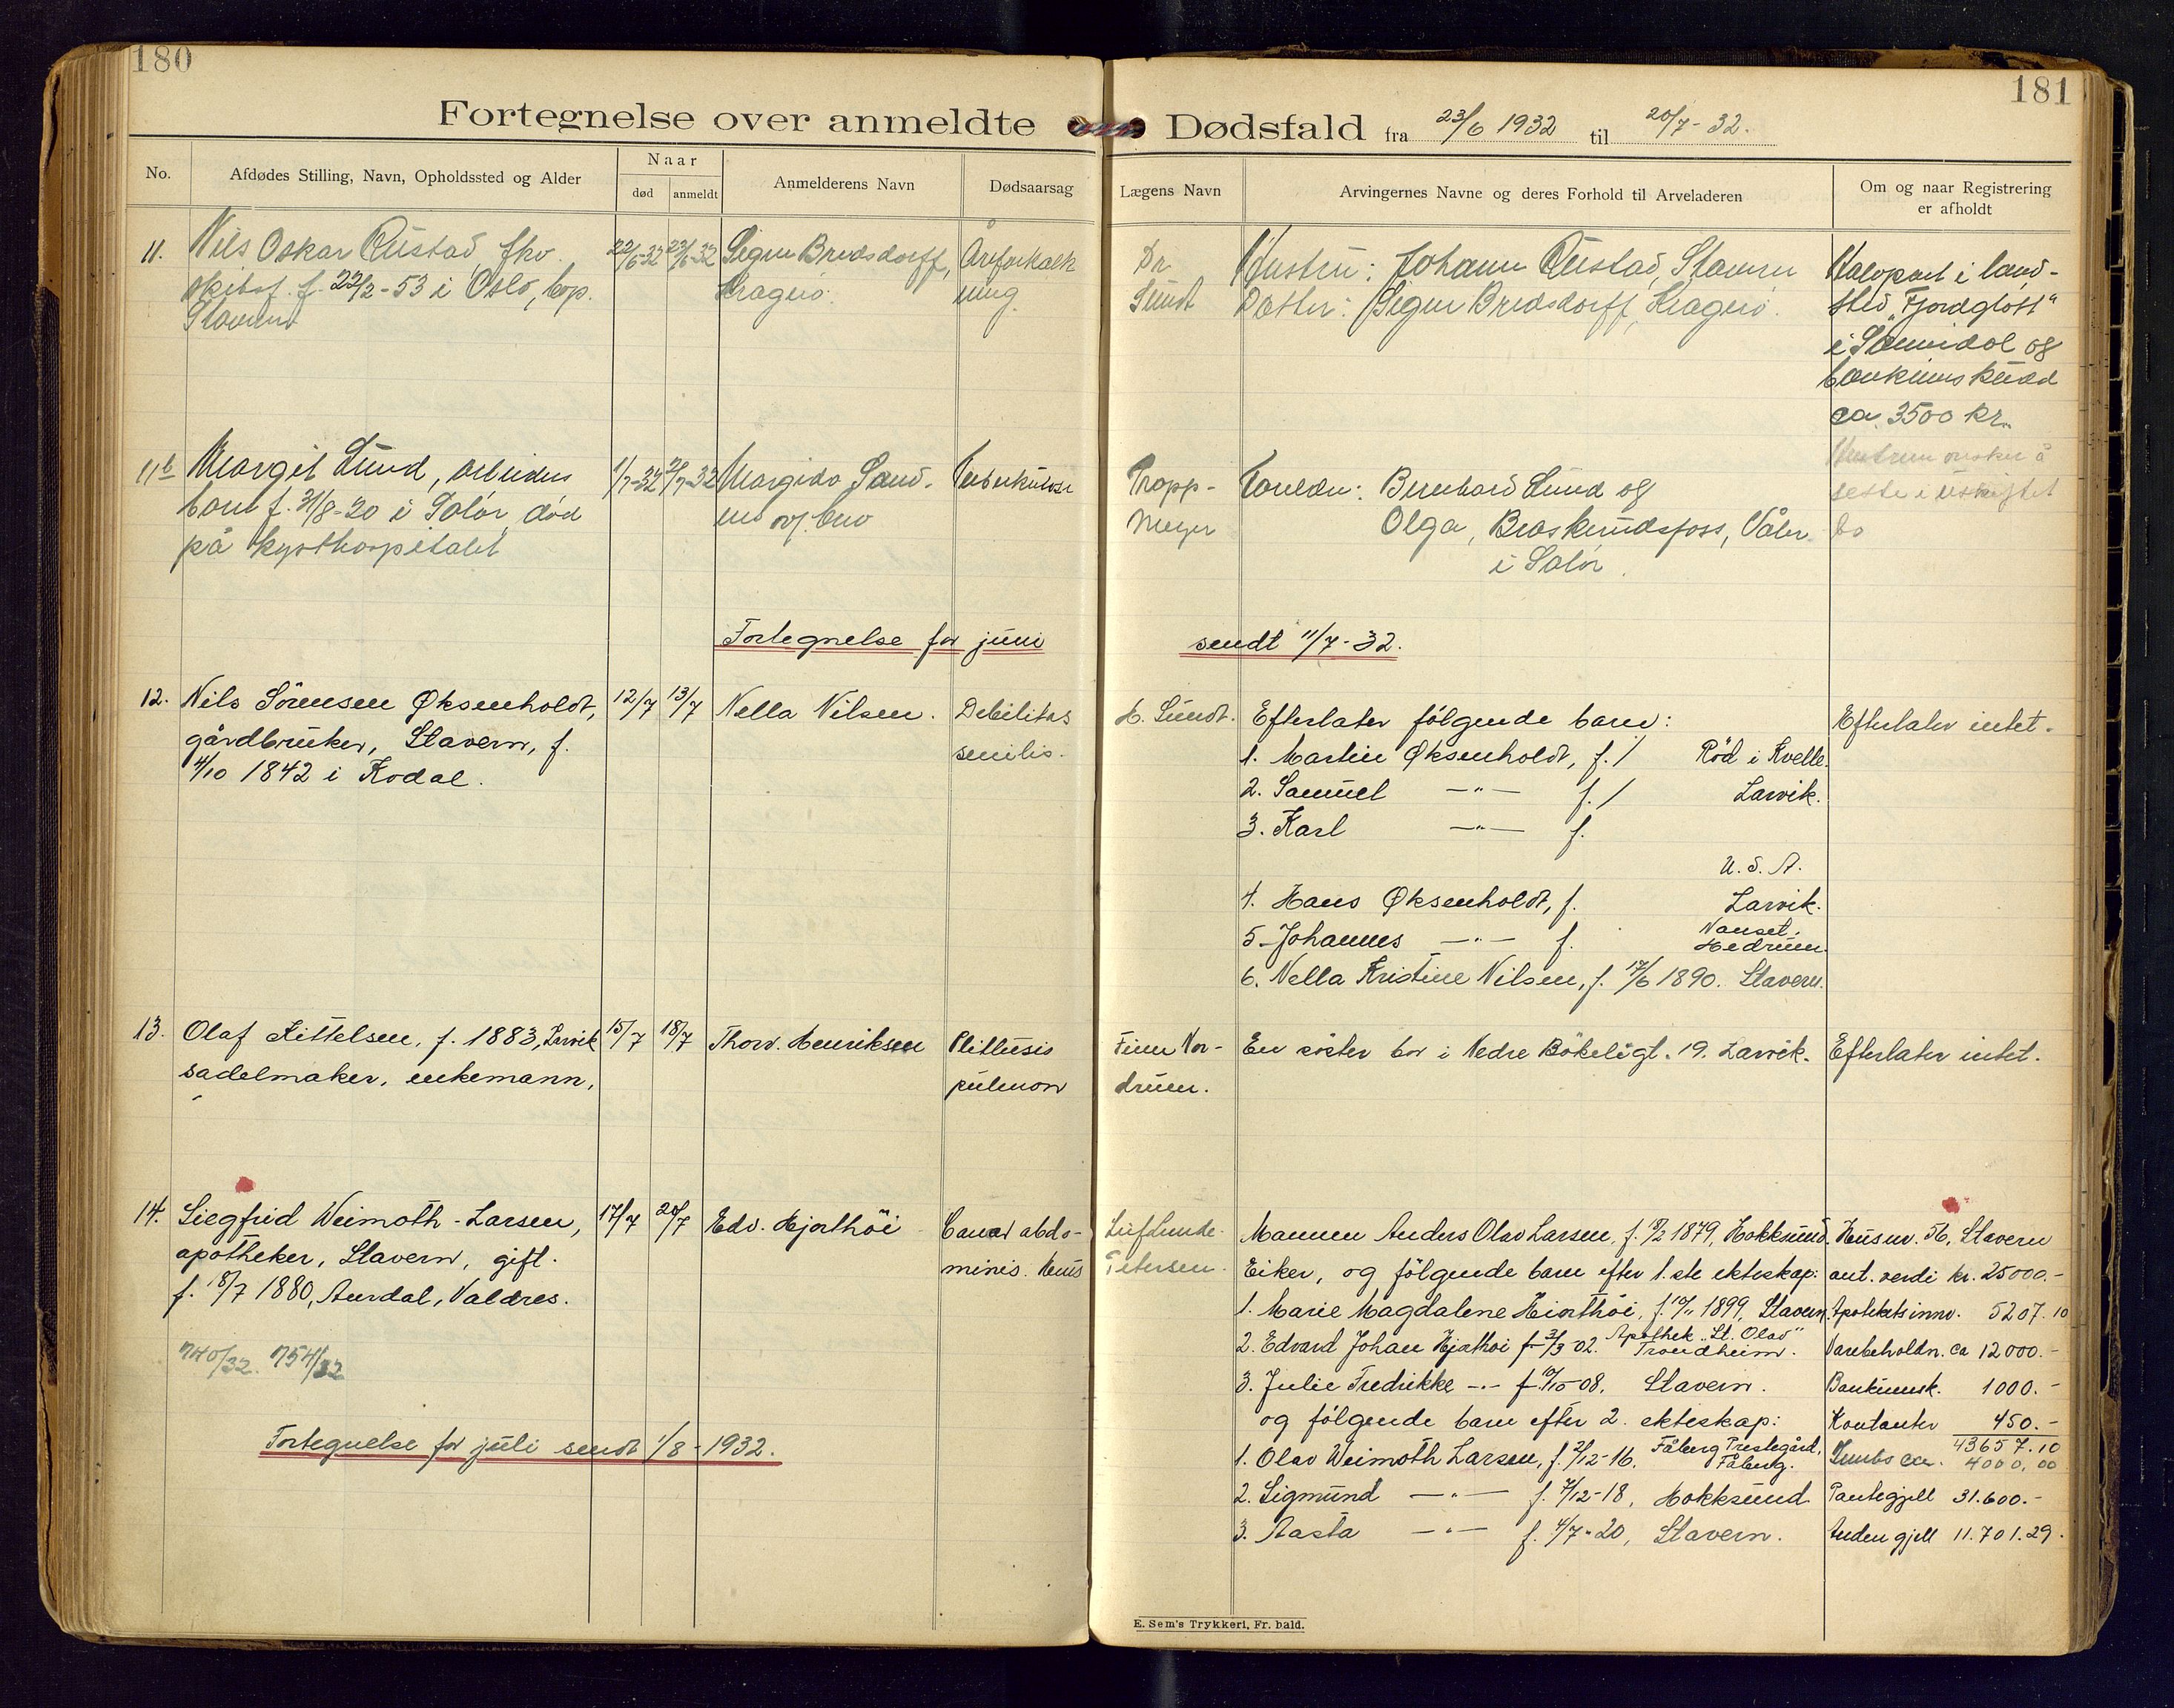 180
181
Fortegnelse over anmeldte Dødsfald fra 23/6 1932 til 20/7-32.
No.
Afdødes Stilling, Navn, Opholdssted og Alder
Naar
død
anmeldt
Anmelderens Navn
Dødsaarsag
Lægens Navn
Arvingernes Navne og deres Forhold til Arveladeren
Om og naar Registrering
er afholdt
11.
Nils Oskar Rustad, fhv.
skibsf. f. 22/2-53 i Oslo, bop.
Stavern
22/6-32
23/6-32
Signe Bredsdorff,
Kragerö.
Åreforkalk
ning
Dr.
Sundt
Hustru: Johanne Rustad, Stavern
Datter: Signe Bredsdorff, Kragerö.
Halvpart i land-
sted "Fjordgløtt"
i Sannidal og
bankinnskudd
ca. 3500 kr.
Hustruen ønsker å
sitte i uskiftet
bo
11b
Margit Lund, arbeider
barn f. 31/8-20 i Solör, död
på kysthospitalet
1/7-32
2/7-32
Tuberkulose
Tropp-
Meyer
Foreldre: Bernhard Lund og
Olga, Braskerudsfoss, Våler
i Solör.
Fortegnelse for juni sendt 11/7-32.
12.
Nils Sörensen Øksenholdt,
gårdbruker, Stavern, f.
4/10 1842 i Kodal.
12/7
13/7
Nella Nilsen.
Debilitas
senilis.
H. Sundt.
Efterlater fölgende barn:
1. Martin Øksenholdt, f. / Röd i Kvelle.
2. Samuel —"— f. / Larvik.
3. Karl —"— f.
U. S. A.
4. Hans Øksenholdt, f. Larvik.
5. Johannes —"— f. Nanset.
Hedrum.
6. Nella Kristine Nilsen, f. 17/6 1890. Stavern.
Efterlater intet.
13.
Olaf Kittelsen, f. 1883, Larvik
sadelmaker, enkemann,
15/7
18/7
Thorv. Henriksen
Phthisis
pulmon
Finn Nor-
drum.
En söster bor i Nedre Bökeligt. 19. Larvik.
Efterlater intet.
14.
Siegfrid Weimoth-Larsen,
apotheker, Stavern, gift.
f. 18/7 1880, Aurdal, Valdres.
740/32. 754/32
17/7
20/7
Edv. Hjorthöi
Cancer abdo-
minis.
Leif Lunde-
Petersen.
Mannen Anders Olav Larsen, 1879, Hokksund.
Eiker, og fölgende barn efter 1.ste ekteskap:
1. Marie Magdalene Hiorthöi, 1899, Stavern.
2. Edvard Johan Hjorthöi f. 3/3-02. Apothek "St. Olav"
Trondheim.
3. Julie Fredrikke -"- f. 10/10-08. Stavern.
og fölgende barn efter 2. ekteskap:
1. Olav Weimoth Larsen, f. 2/12-16. Fåberg Prestegård,
Fåberg.
2. Sigmund —"— f. 7/12-18, Hokksund
3. Aasta —"— f. 4/7-20, Stavern.
Husnr. 56, Stavern
ant. verdi kr. 25000.-
Apotekets innv. 5207.10
Varebeholdn. ca 12000.-
Bankinnsk. 1000.-
Kontanter 450.-
43657.10
Innbo ca. 4000,00
Pantegjeld 31.600.-
Anden gjeld 11.701.29.
Fortegnelse for juli sendt 1/8-1932.
E. Sem's Trykkeri, Fr. hald.